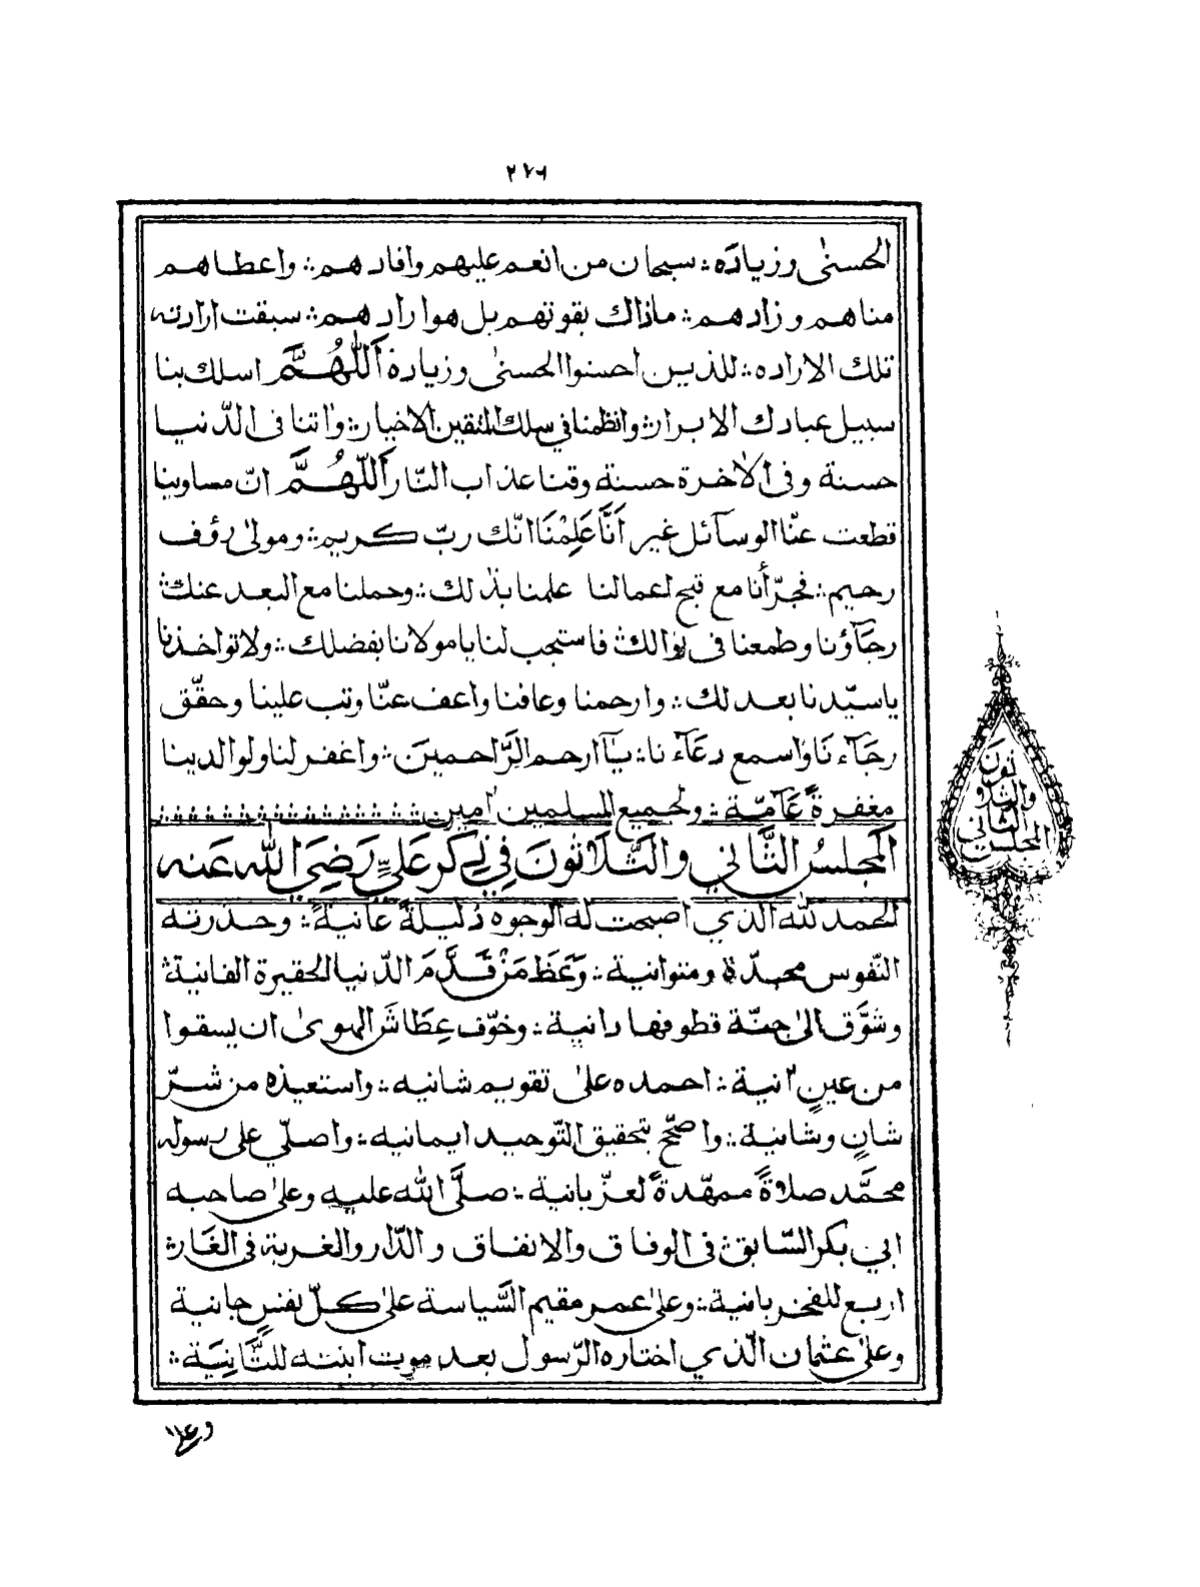 ٢٧٦
الحسنى وزيادة ؞ سبحان من انعم عليهم وافادهم ؞ واعطاهم
مناهم وزادهم ؞ ماذاك بقوتهم بل هو ارادهم ؞ سبقت ارادته
تلك الاراده ؞ للذين احسنوا الحسنى وزيادة اَللّٰهُمَّ اسلك بنا
سبيل عبادك الابرار ؞ وانظمنا في سلك المتقين الاخيار ؞ واتنا فى الدّنيا
حسنة وفى الاخرة حسنة وقنا عذاب النّار اَللّٰهُمَّ انّ مساوينا
قطعت عنّا الوسآئل غير اَنَّا عَلِمْنَا انّك ربّ كريم ؞ ومولىٰ رؤف
رحيم ؞ فجرّأنا مع قبح اعمالنا علمنا بذٰلك ؞ وحملنا مع البعد عنك ؞
رجآؤنا وطمعنا فى نوالك ؞ فاستجب لنا يا مولانا بفضلك ؞ ولا تواخذنا
يا سيّدنا بعدلك ؞ وارحمنا وعافنا واعف عنّا وتب علينا وحقّق
رجَآءنَا واسمع دعَآءنا ؞ يآ ارحم الرَّاحمينَ ؞ واغفر لنا ولوالدينا
مغفرةً عَآمّة ؞ ولجميع المسلمين اٰمين ؞؞؞؞؞؞؞؞؞؞؞؞؞؞
اَلمجلسُ الثَّاني والثَّلاثونَ فِي ذِكر عَليٍّ رَضِيَ اللّٰه عَنه
الحمد للّٰه الذي اصبحت له الوجوه ذليلةً عانيةً ؞ وحذرته
النّفوس مجدّة ومتوانية ؞ وَعَظَ مَنْ قَدَّمَ الدّنيا الحقيرة الفانية ؞
وشوَّق الىٰ جنّة قطوفها دانية ؞ وخوّف عِطَاشَ الهوىٰ ان يسقوا
من عينٍ اٰنية ؞ احمده علىٰ تقويم شانيه ؞ واستعيذه من شرّ
شانٍ وشانية ؞ واصحّح بتحقيق التّوحيد ايمانيه ؞ واصلّي على رسوله
محمَّد صلاةً ممهّدةً لعزّ بانية ؞ صلَّى اللّٰه عليه وعلىٰ صاحبه
ابي بكر السّابق ؞ فى الوفاق والانفاق والدّار والغربة فى الغَار ؞
اربع للفخر بانية ؞ وعلىٰ عمر مقيم السَّياسة علىٰ كلّ نفسٍ جانية
وعلىٰ عثمان الّذي اختاره الرّسول بعد موت ابنته للثَّانِيَة ؞
وعلىٰ
المجلس
الثاني
والثلا
ثون